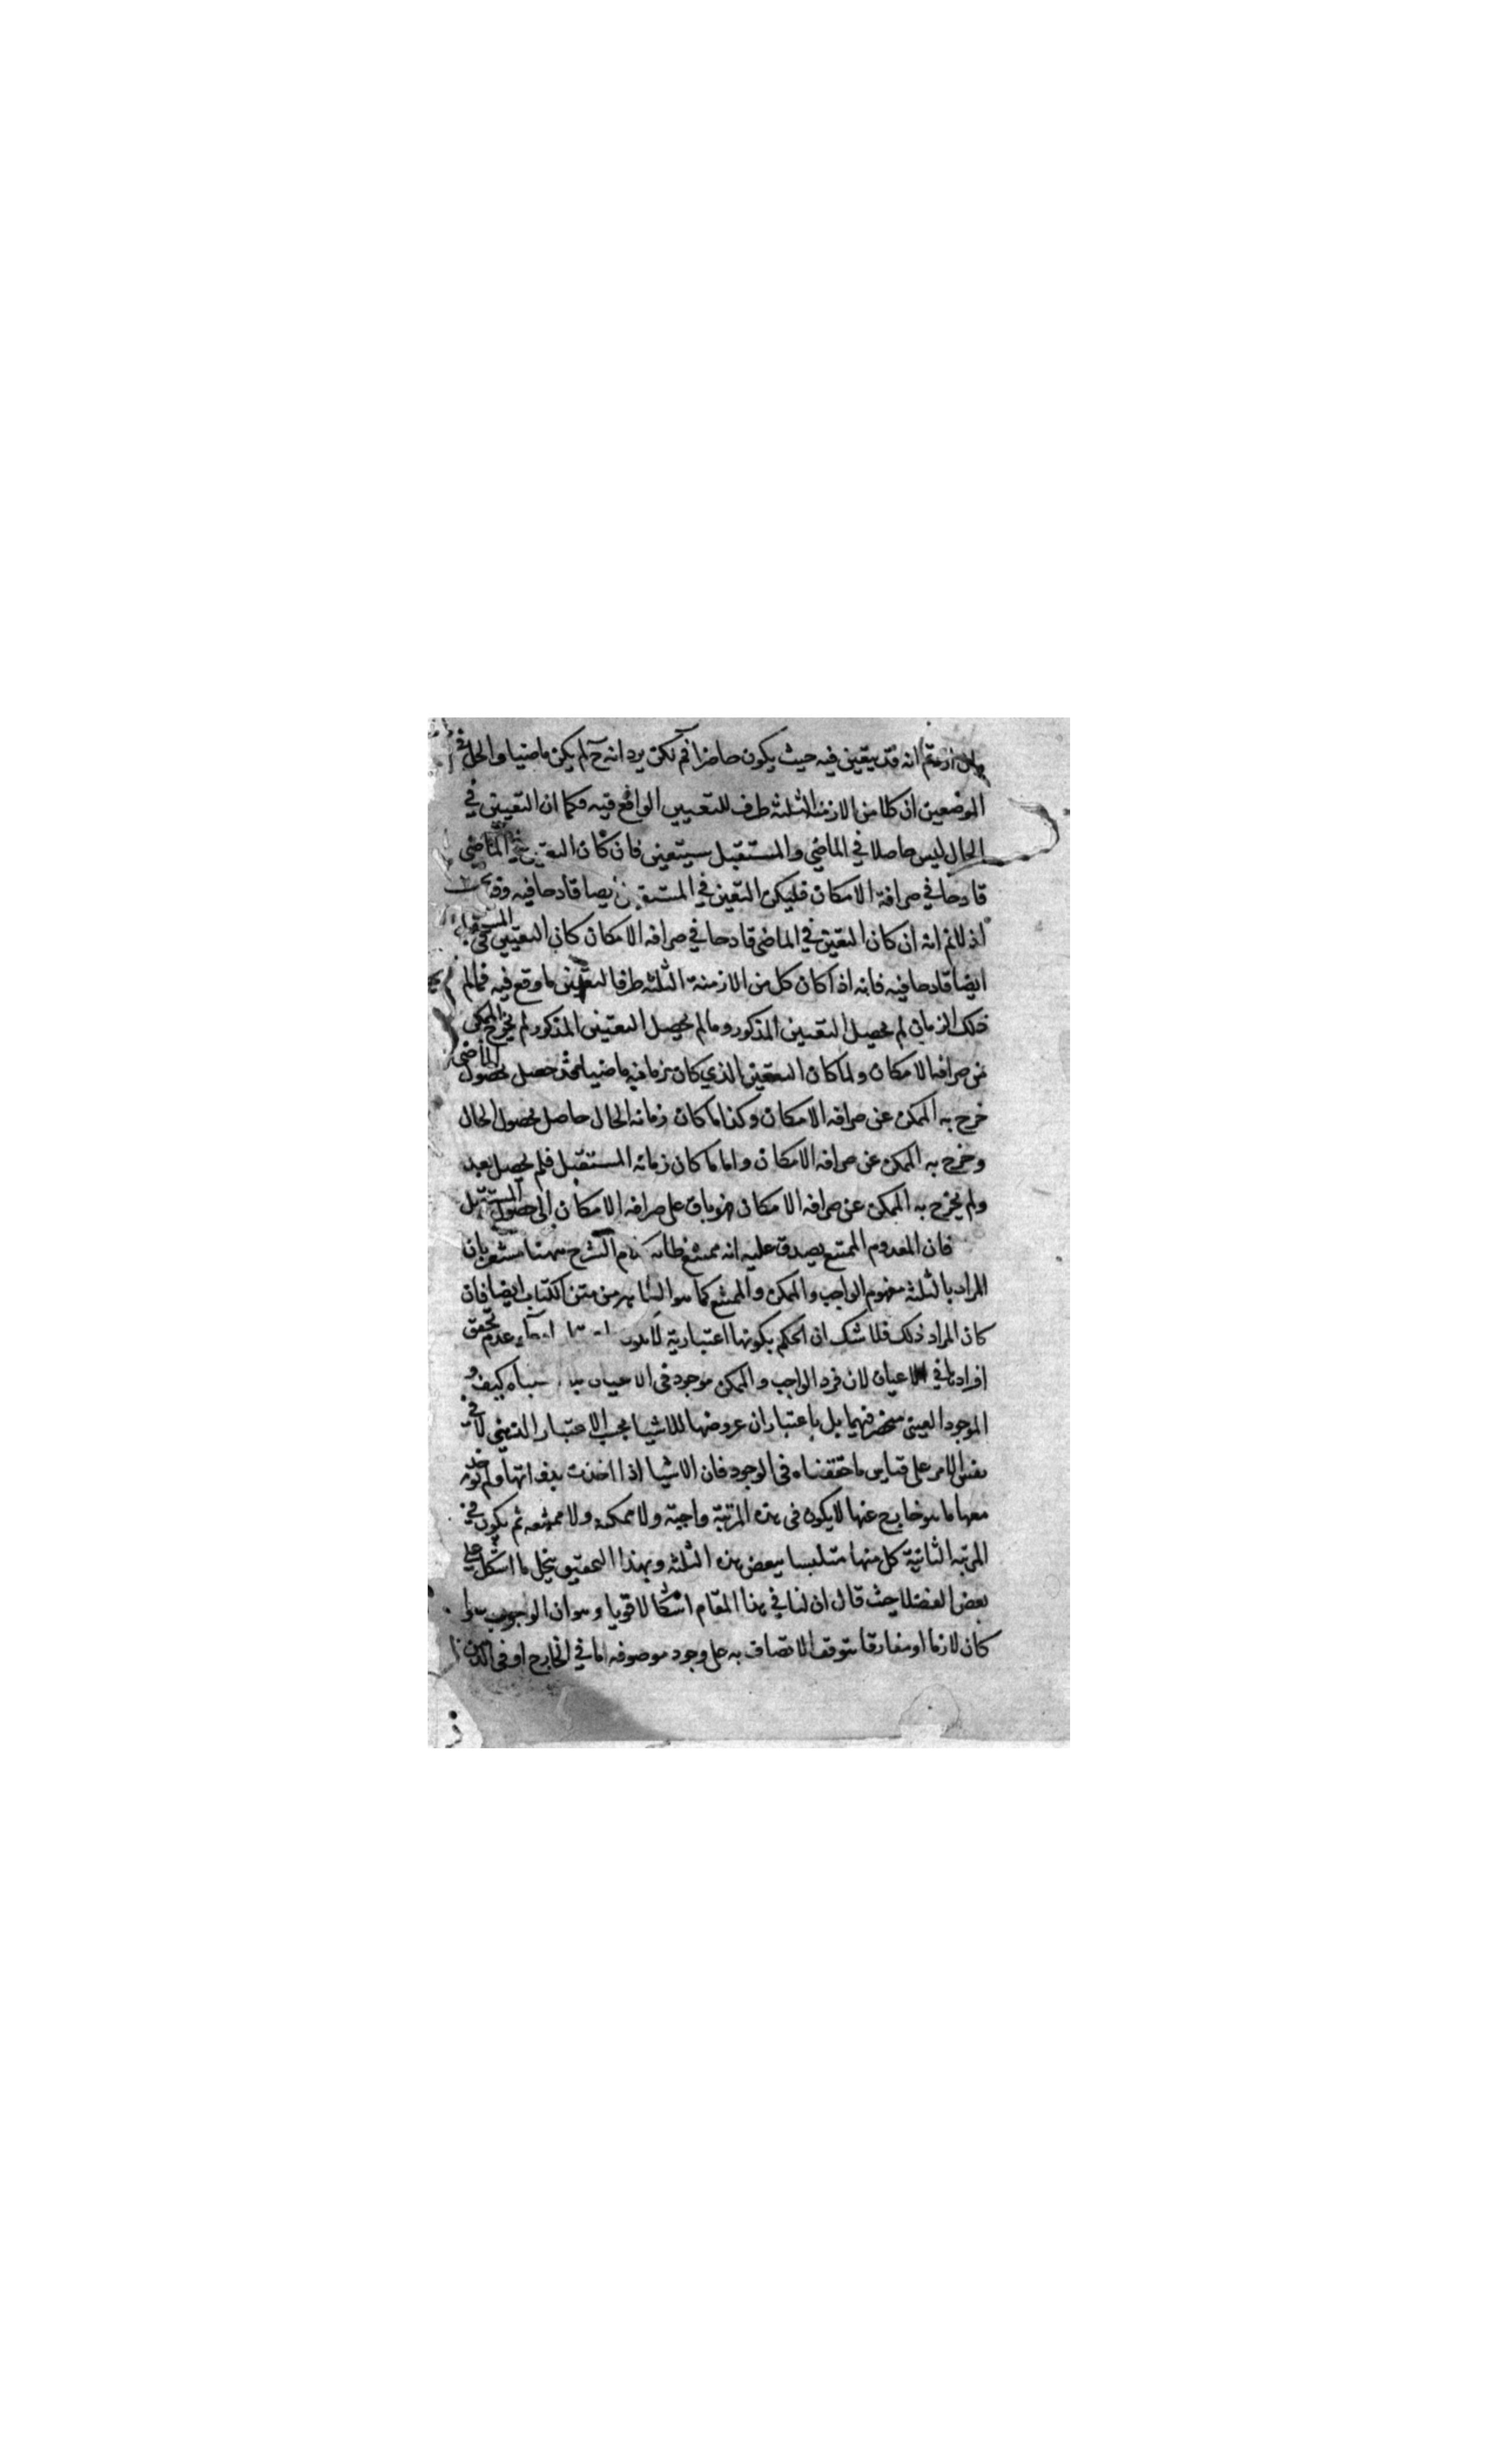 وان اردتم انه قد يتعين فيه حيث يكون حاضرا فم لكن يرد انه ح لم يكن ماضيا والحل في
الموضعين ان كلا من الازمنة الثلثة ظرف للتعيين الواقع فيه فكما ان التعين في
الحال ليس حاصلا في الماضي والمستقبل سيتعين فان كان التعين في الماضي
قادحا في صرافة الامكان فليكن التعين في المستقبل ايضا قادحا فيه
اذ لانم انه ان كان التعين في الماضي قادحا في صرافه الامكان كان التعيين في المستقبل
ايضا قادحا فيه فانه اذا كان كل من الازمنة الثلثه ظرفا لتعين ما وقع فيه فمالم
ذلك الزمان لم يحصل التعيين المذكور ومالم يحصل التعين المذكور لم يخرج الممكن
من صرافه الامكان ولما كان التعين الذي كان زمانه ماضيا قد حصل بحصول الماضي
خرج به الممكن عن صرافه الامكان وكذا ما كان زمانه الحال حاصل بحصول الحال
وخرج به الممكن عن صرافه الامكان واما ما كان زمانه المستقبل فلم يحصل بعد
ولم يخرج به الممكن عن صرافه الامكان فهو باق على صرافه الامكان الى حصول المستقبل
فان المعدوم الممتنع يصدق عليه انه ممتنع كلام الشرح ههنا مشعر بان
المراد بالثلثه مفهوم الواجب والممكن والممتنع كما هو الظاهر من متن الكتاب ايضا فان
كان المراد ذلك فلا شك ان الحكم بكونها اعتبارية عدم تحقق
افرادها في الاعيان لان فرد الواجب والممكن موجود في الاعيان كيف و
الموجود العيني منحصر فيهما بل باعتبار ان عروضها للاشيا بحسب الاعتبار الذهني لا في
نفس الامر على قياس ما حققناه في الوجود فان الاشيا اذا اخذت بذواتها ولم يوخذ
معها ما هو خارج عنها لا يكون في هذه المرتبة واجبة ولا ممكنه ولا ممتنعه ثم يكون في
المرتبه الثانية كل منها متلبسا ببعض هذه الثلثه وبهذا التحقيق ينحل ما اشكل على
بعض الفضلا حيث قال ان لنا في هذا المقام اشكالا قويا وهو ان الوجوب سوا
كان لازما او مفارقا يتوقف الاتصاف به على وجود موصوفه اما في الخارج او في الذهن